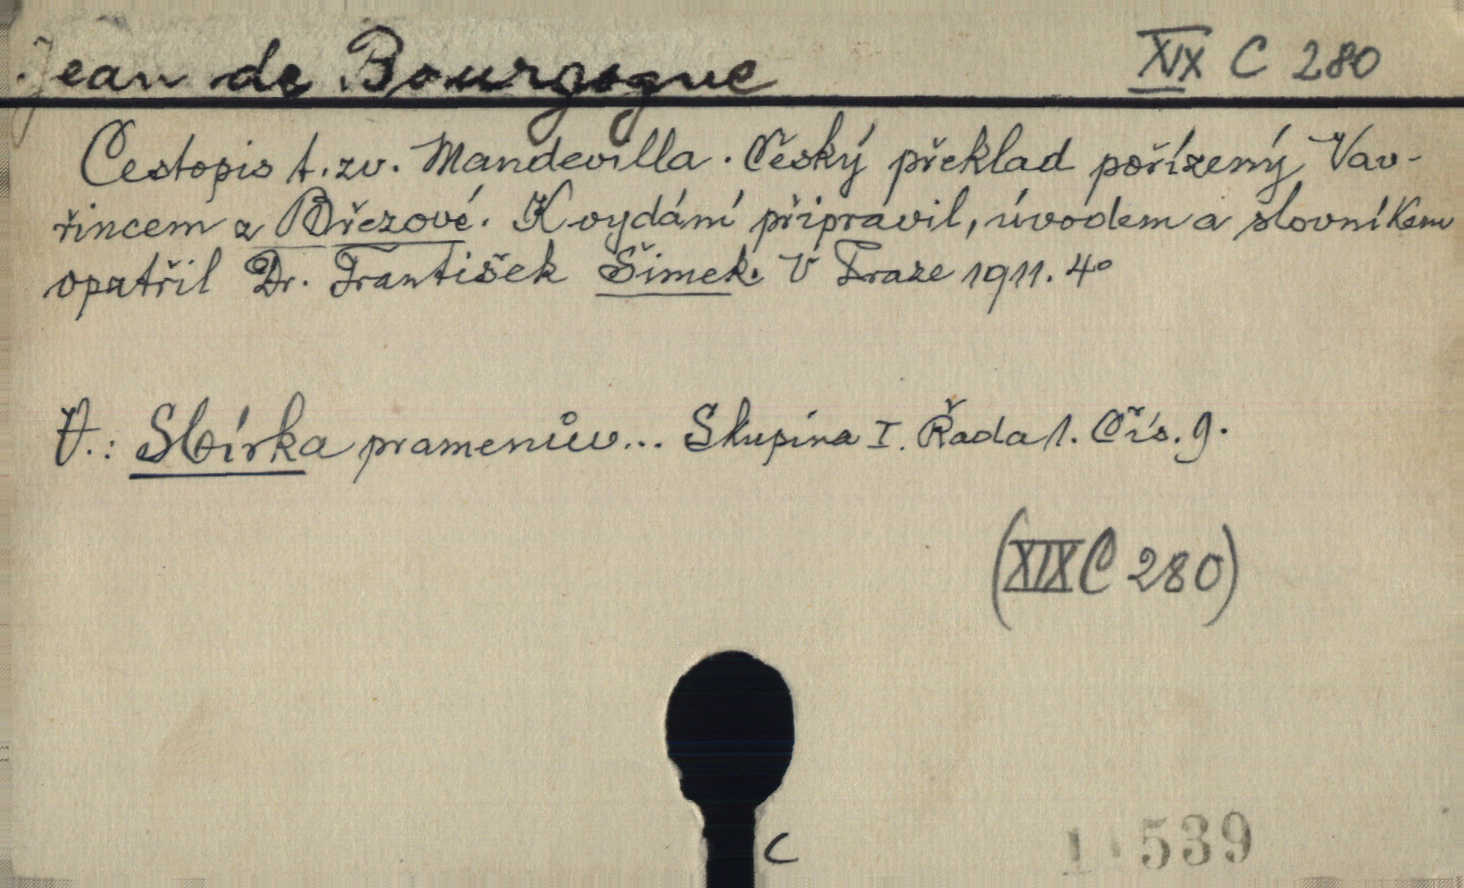 Jean de Bourgogne XIX C 280
Cestopis t. zv. Mandevilla. Český překlad pořízený Vav-
řincem z Březové. K vydání připravil, úvodem a slovníkem
opatřil Dr. František Šimek. V Praze 1911. 4°
V.: Sbírka pramenův... Skupina I. Řada 1. Čís. 9.
(XIX C 280)
C
539